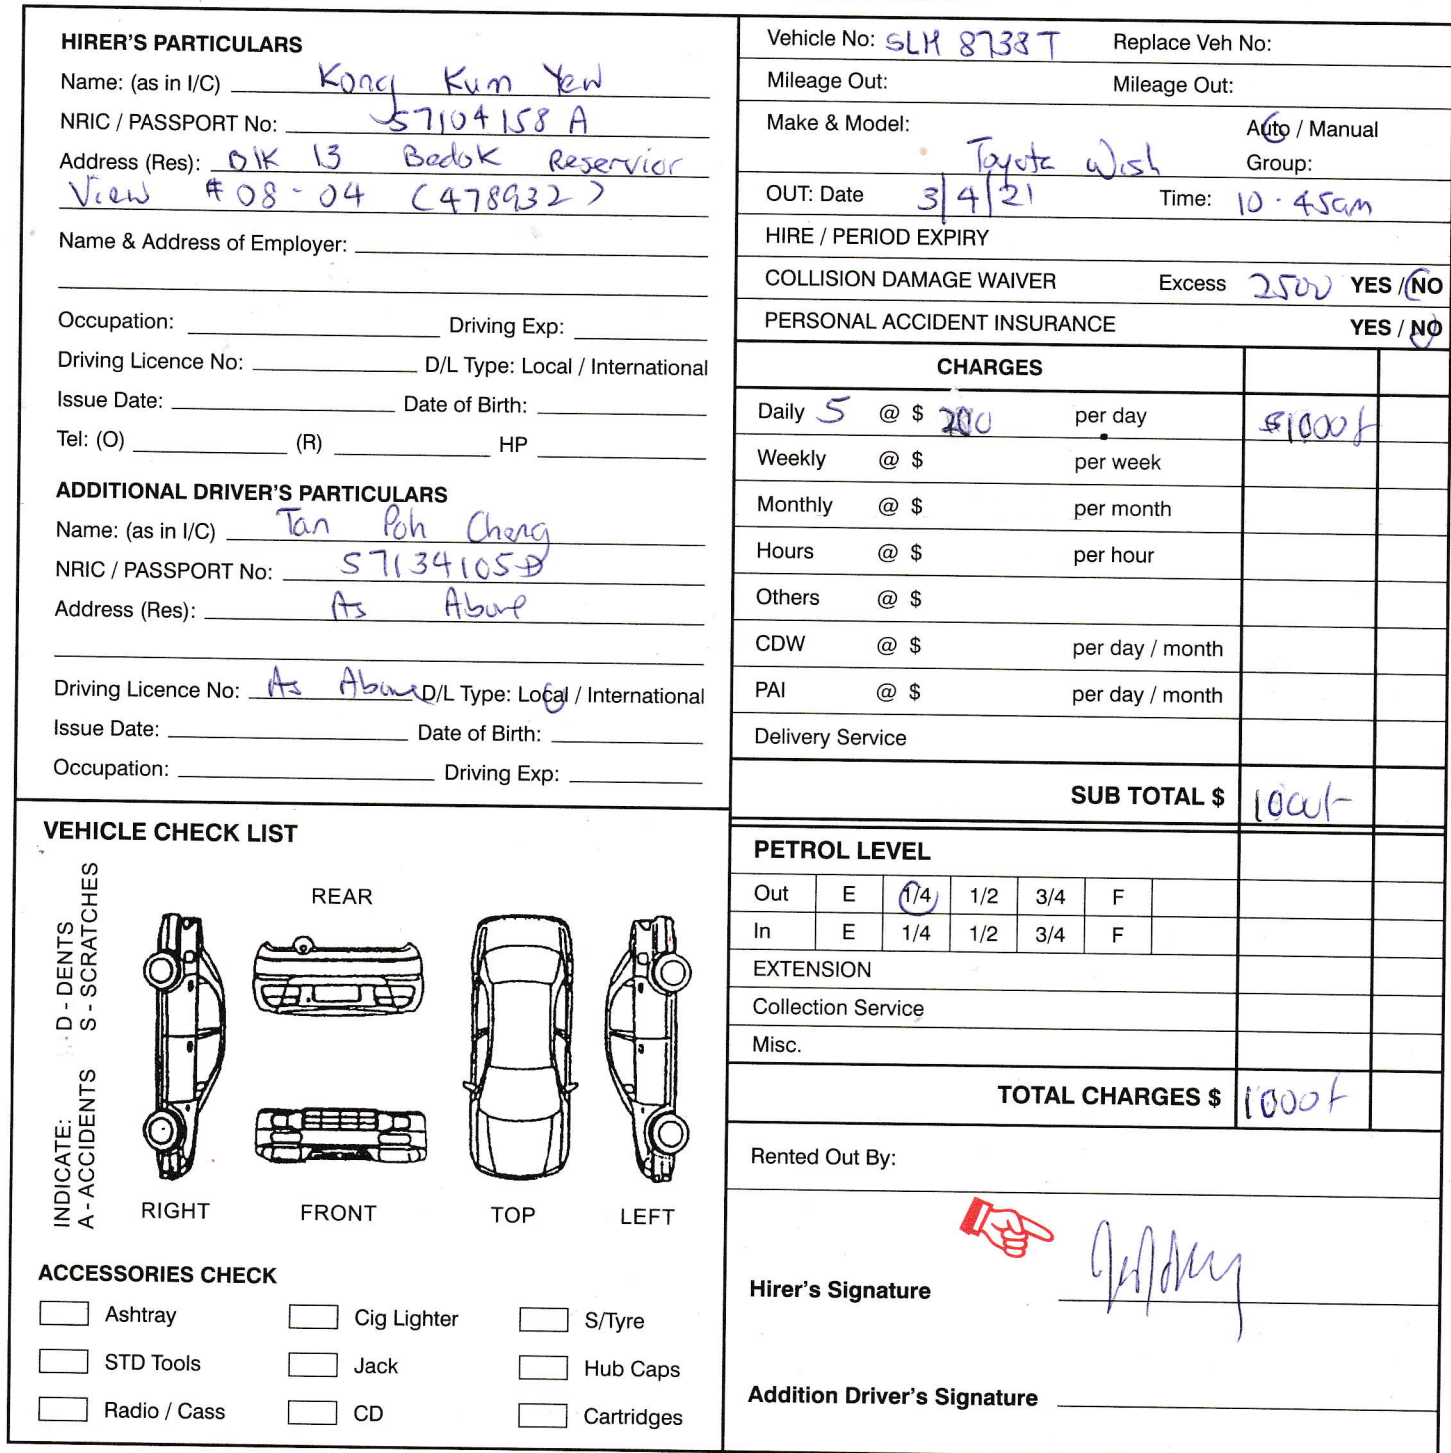 HIRER'S PARTICULARS
Name: (as in I/C) Kong Kum Yew
NRIC / PASSPORT No: S7104158A
Address (Res): Blk 13 Bedok Reservior
View #08-04 (478932)
Name & Address of Employer:
Occupation: Driving Exp:
Driving Licence No: D/L Type: Local / International
Issue Date: Date of Birth:
Tel: (O) (R) HP
ADDITIONAL DRIVER'S PARTICULARS
Name: (as in I/C) Tan Poh Cheng
NRIC / PASSPORT No: S7134105D
Address (Res): As Above
Driving Licence No: As Above D/L Type: Local / International
Issue Date: Date of Birth:
Occupation: Driving Exp:
VEHICLE CHECK LIST
INDICATE: D - DENTS
A - ACCIDENTS S - SCRATCHES
REAR
RIGHT FRONT TOP LEFT
ACCESSORIES CHECK
Ashtray Cig Lighter S/Tyre
STD Tools Jack Hub Caps
Radio / Cass CD Cartridges
Vehicle No: SLH 8738T Replace Veh No:
Mileage Out: Mileage Out:
Make & Model: Auto / Manual
Toyota Wish Group:
OUT: Date 3/4/21 Time: 10.45am
HIRE / PERIOD EXPIRY
COLLISION DAMAGE WAIVER Excess 2500 YES / NO
PERSONAL ACCIDENT INSURANCE YES / NO
CHARGES
Daily 5 @ $ 200 per day $1000/-
Weekly @ $ per week
Monthly @ $ per month
Hours @ $ per hour
Others @ $
CDW @ $ per day / month
PAI @ $ per day / month
Delivery Service
SUB TOTAL $ 1000/-
PETROL LEVEL
Out E 1/4 1/2 3/4 F
In E 1/4 1/2 3/4 F
EXTENSION
Collection Service
Misc.
TOTAL CHARGES $ 1000/-
Rented Out By:
Hirer's Signature
Addition Driver's Signature